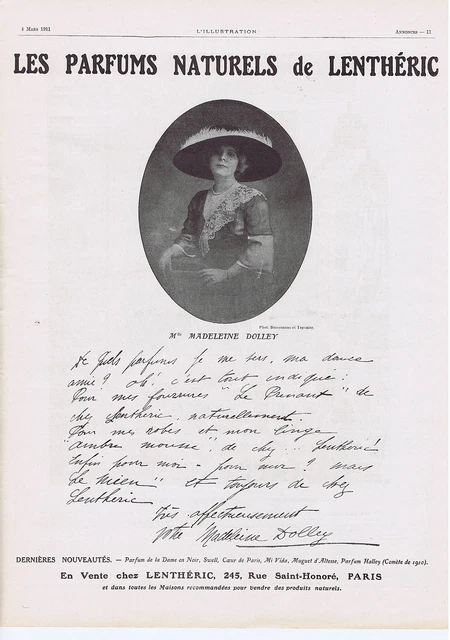 4 MARS 1911 L'ILLUSTRATION ANNONCES — 11
LES PARFUMS NATURELS de LENTHÉRIC
Phot. Boissonnas et Taponier.
Mlle MADELEINE DOLLEY
De quels parfums je me sers, ma douce
amie ? oh ! c'est tout indiqué :
Pour mes fourrures "Le Prenant" de
chez Lenthéric, naturellement.
Pour mes robes et mon linge
"ambre mousse", de chez... Lenthéric !
Enfin pour moi - pour moi ? mais
Le Mien" et toujours de chez
Lenthéric
Très affectueusement
votre Madeleine Dolley
DERNIÈRES NOUVEAUTÉS. — Parfum de la Dame en Noir, Suell, Cœur de Paris, Mi Vida, Muguet d'Altesse, Parfum Halley (Comète de 1910).
En Vente chez LENTHÉRIC, 245, Rue Saint-Honoré, PARIS
et dans toutes les Maisons recommandées pour vendre des produits naturels.